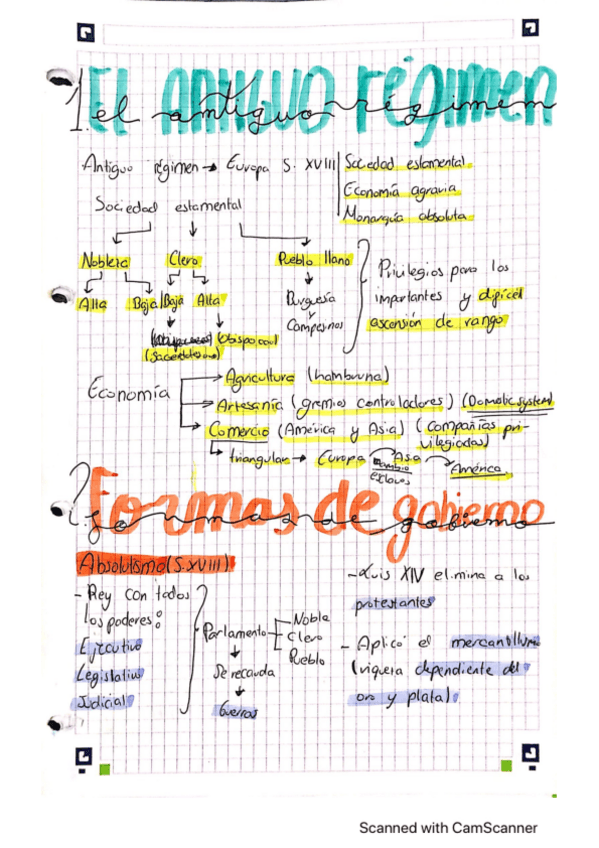 1. El antiguo régimen
el antiguo régimen
Antiguo régimen → Europa S. XVIII
Sociedad estamental
Economía agraria
Monarquía absoluta
Sociedad estamental
Nobleza
Clero
Pueblo llano
Alta
Baja
Baja
Alta
Burguesía
y
Campesinos
Obispo
(Sacerdotes
Privilegios para los
importantes y dificil
ascensión de rango
Economía
Agricultura (hambruna)
Artesanía (gremios controladores) (Domatic system
Comercio (América y Asia) (compañías pri-
vilegiadas)
triangular → Europa
Asa
América
2. Formas de gobierno
formas de gobierno
Absolutismo (S. XVIII)
- Rey con todos
los poderes:
Ejecutivo
Legislativo
Judicial
Parlamento
Noble
Clero
Pueblo
↓
Se recauda
↓
Guerras
- Luis XIV elimina a los
protestantes
- Aplicó el mercantilismo
(riqueza dependiente del
oro y plata)
Scanned with CamScanner